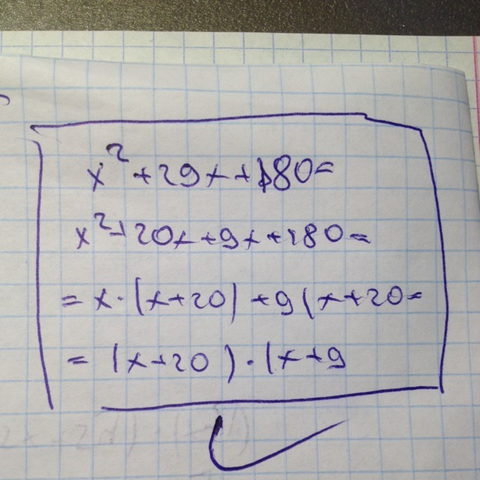 x²+29x+180=
x²+20x+9x+180=
=x·(x+20)+9(x+20=
=(x+20)·(x+9